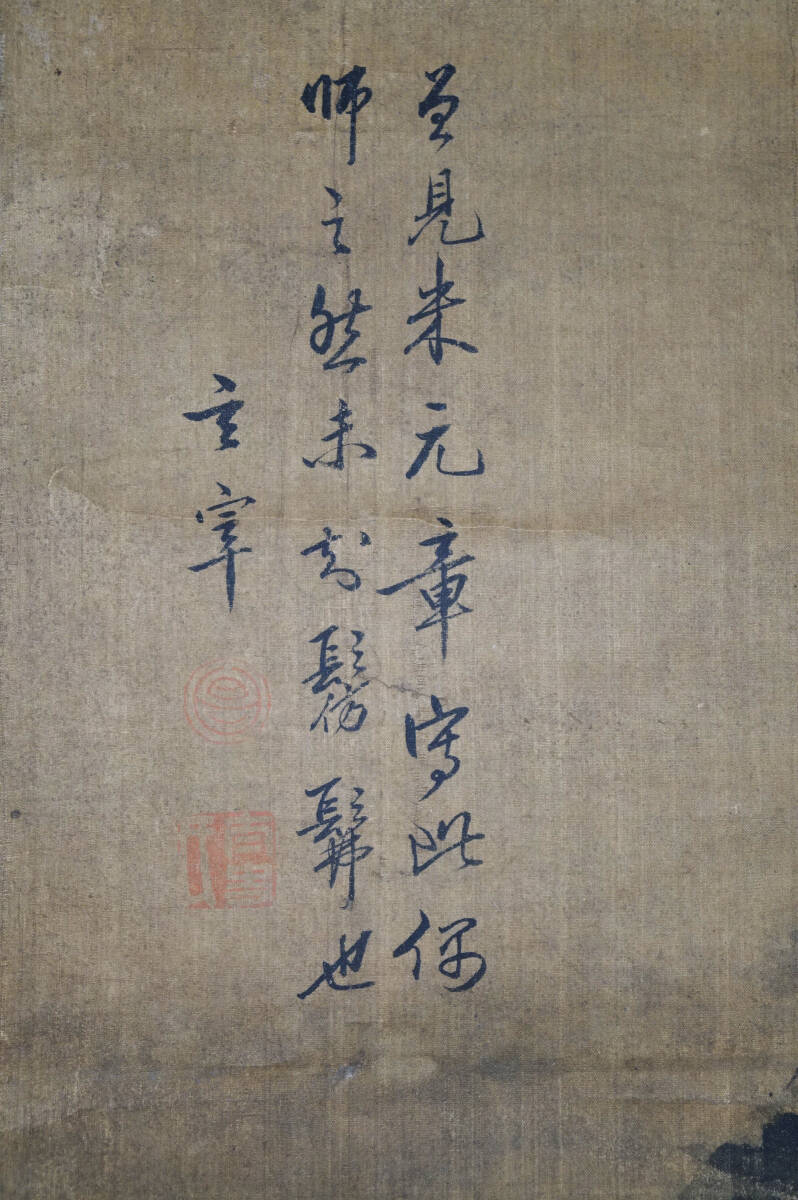 曾見米元章寫此偶
師之然未知髣髴也
玄宰